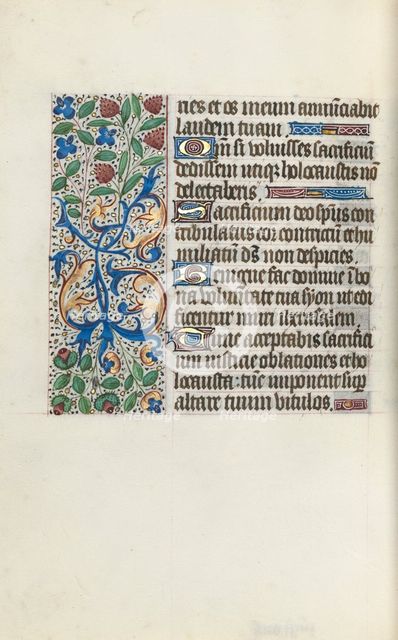 ries et os meum annūciabit
laudem tuam.
Qm̄ si voluisses sacrificiū
dedissem utiqȝ holocaustis nō
delectaberis.
Sacrificium deo sp̄us con
tribulatus cor contritū et hu
miliatū ds̄ non despicies.
Benigne fac domine ī bo
na voluntate tua syon ut edi
ficentur muri iherusalem
Tunc acceptabis sacrifici
um iusticie oblationes et ho
locausta: tūc imponent sup̄
altare tuum vitulos.
heritage